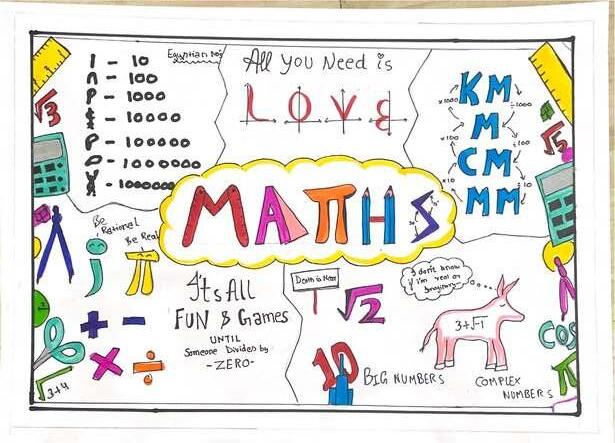 Egyptian No.
I - 10
∩ - 100
P - 1000
- 10000
P - 100000
O - 1000000
All You Need is
LOVE
KM
×1000 ÷1000
M
×100 ÷100
CM
×10 ÷10
MM
√3
√5
MATHS
Be Rational
Be Real
i
π
+ -
× ÷
√3+4
It's All
FUN & Games
UNTIL
Someone Divides by
-ZERO-
Death is Near
√2
10
BIG NUMBERS
I don't know
if i'm real or
imaginary
3+√-1
COMPLEX
NUMBERS
COS
π